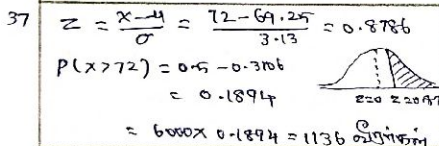 37 Z = x-μ/σ = 72-69.25/3.13 = 0.8786
P(x>72) = 0.5 - 0.3106
= 0.1894
Z=0 Z=0.87
= 6000 x 0.1894 = 1136 வீரர்கள்